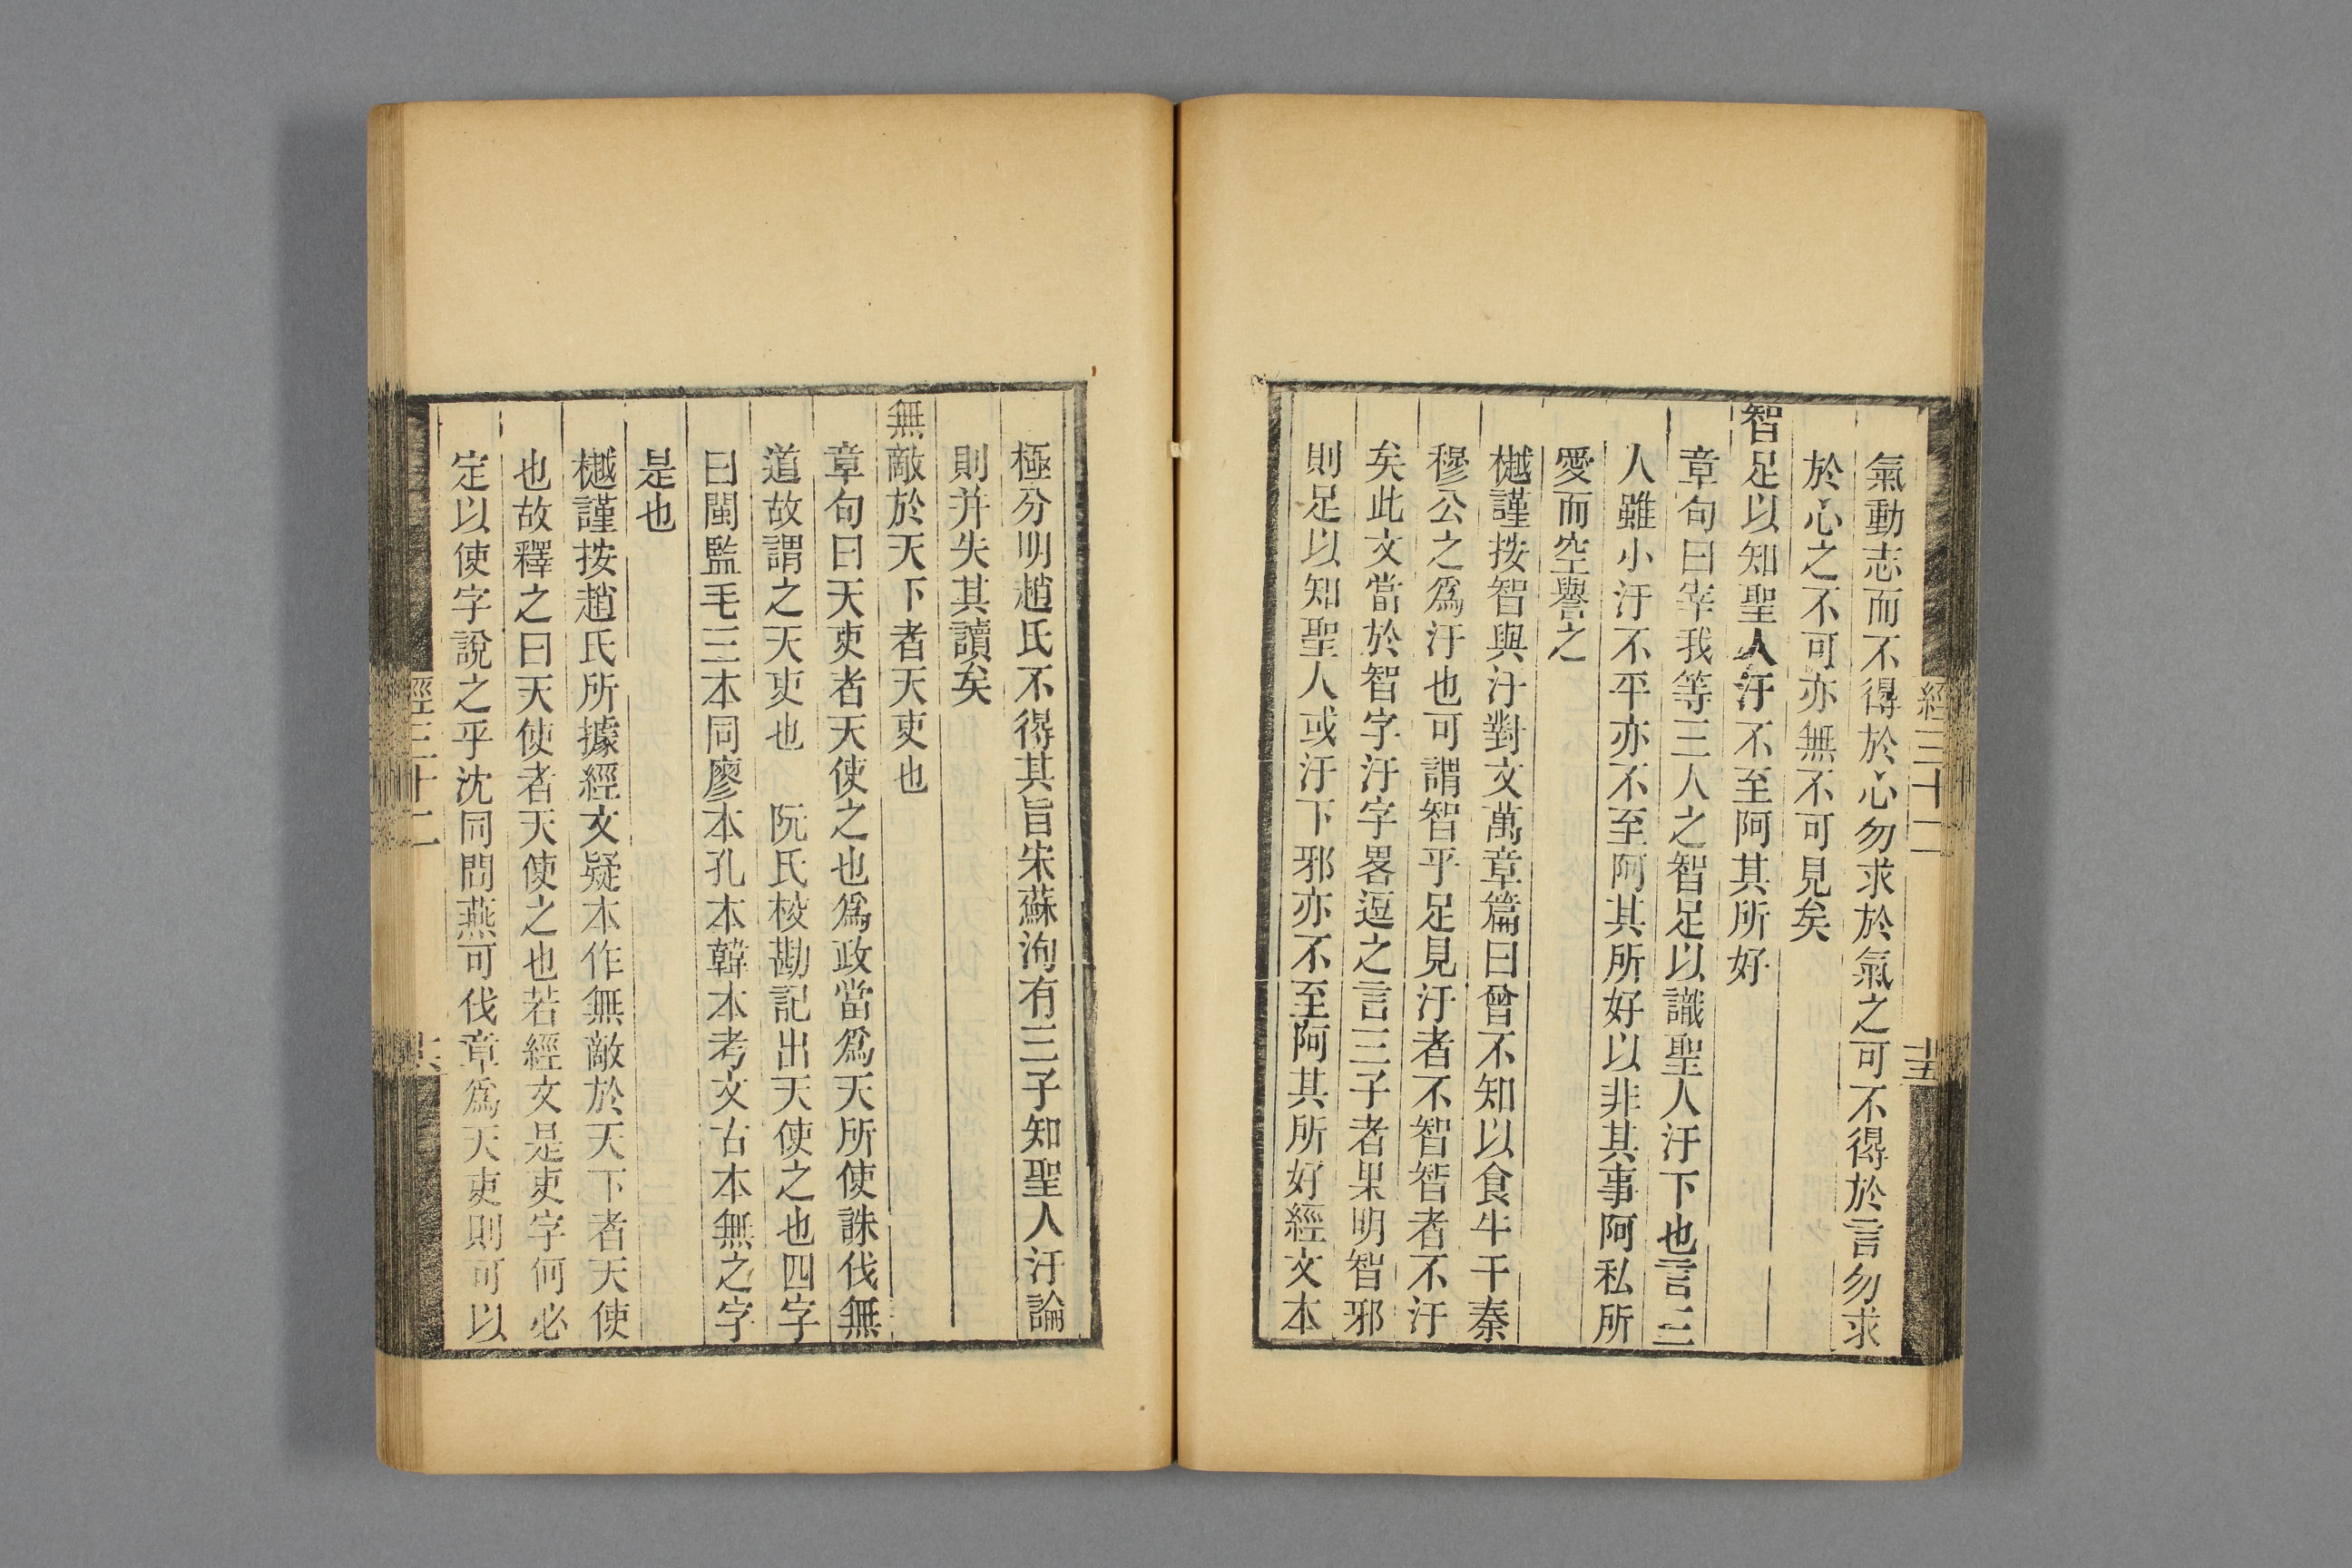 經三十二
十五
氣動志而不得於心勿求於氣之可不得於言勿求
於心之不可亦無不可見矣
智足以知聖人汙不至阿其所好
章句曰宰我等三人之智足以識聖人汙下也言三
人雖小汙不平亦不至阿其所好以非其事阿私所
愛而空譽之
樾謹按智與汙對文萬章篇曰曾不知以食牛干秦
穆公之爲汙也可謂智乎足見汙者不智智者不汙
矣此文當於智字汙字畧逗之言三子者果明智邪
則足以知聖人或汙下邪亦不至阿其所好經文本
極分明趙氏不得其旨宋蘇洵有三子知聖人汙論
則并失其讀矣
無敵於天下者天吏也
章句曰天吏者天使之也爲政當爲天所使誅伐無
道故謂之天吏也 阮氏校勘記出天使之也四字
曰閩監毛三本同廖本孔本韓本考文古本無之字
是也
樾謹按趙氏所據經文疑本作無敵於天下者天使
也故釋之曰天使者天使之也若經文是吏字何必
定以使字說之乎沈同問燕可伐章爲天吏則可以
經三十二